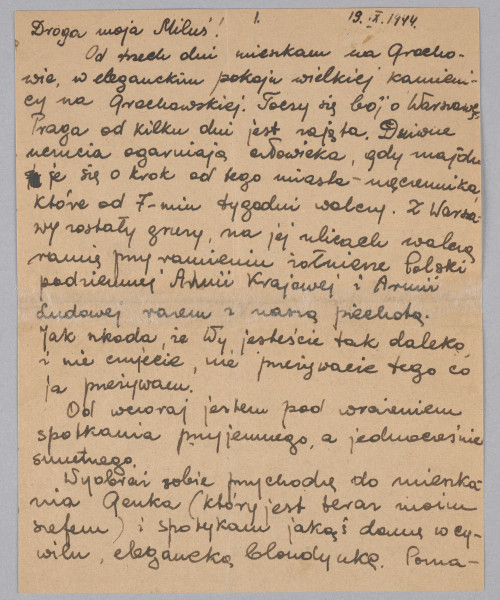 Droga moja Miluś! 1. 19.IX.1944.
Od trzech dni mieszkam na Grocho-
wie, w eleganckim pokoju wielkiej kamieni-
cy na Grochowskiej. Toczy się bój o Warszawę,
Praga od kilku dni jest zajęta. Dziwne
uczucia ogarniają człowieka, gdy znajdu
je się o krok od tego miasta-męczennika
które od 7-miu tygodni walczy. Z Warsza-
wy zostały gruzy, na jej ulicach walczą
ramię przy ramieniu żołnierze Polski
podziemnej Armii Krajowej i Armii
Ludowej razem z naszą piechotą.
Jak szkoda, że Wy jesteście tak daleko
i nie czujecie, nie przeżywacie tego co
ja przeżywam.
Od wczoraj jestem pod wrażeniem
spotkania przyjemnego, a jednocześnie
smutnego.
Wyobraź sobie przychodzę do mieszka-
nia Genka (który jest teraz moim
szefem) i spotykam jakąś damę w cy-
wilu, elegancką blondynkę. Pozna-